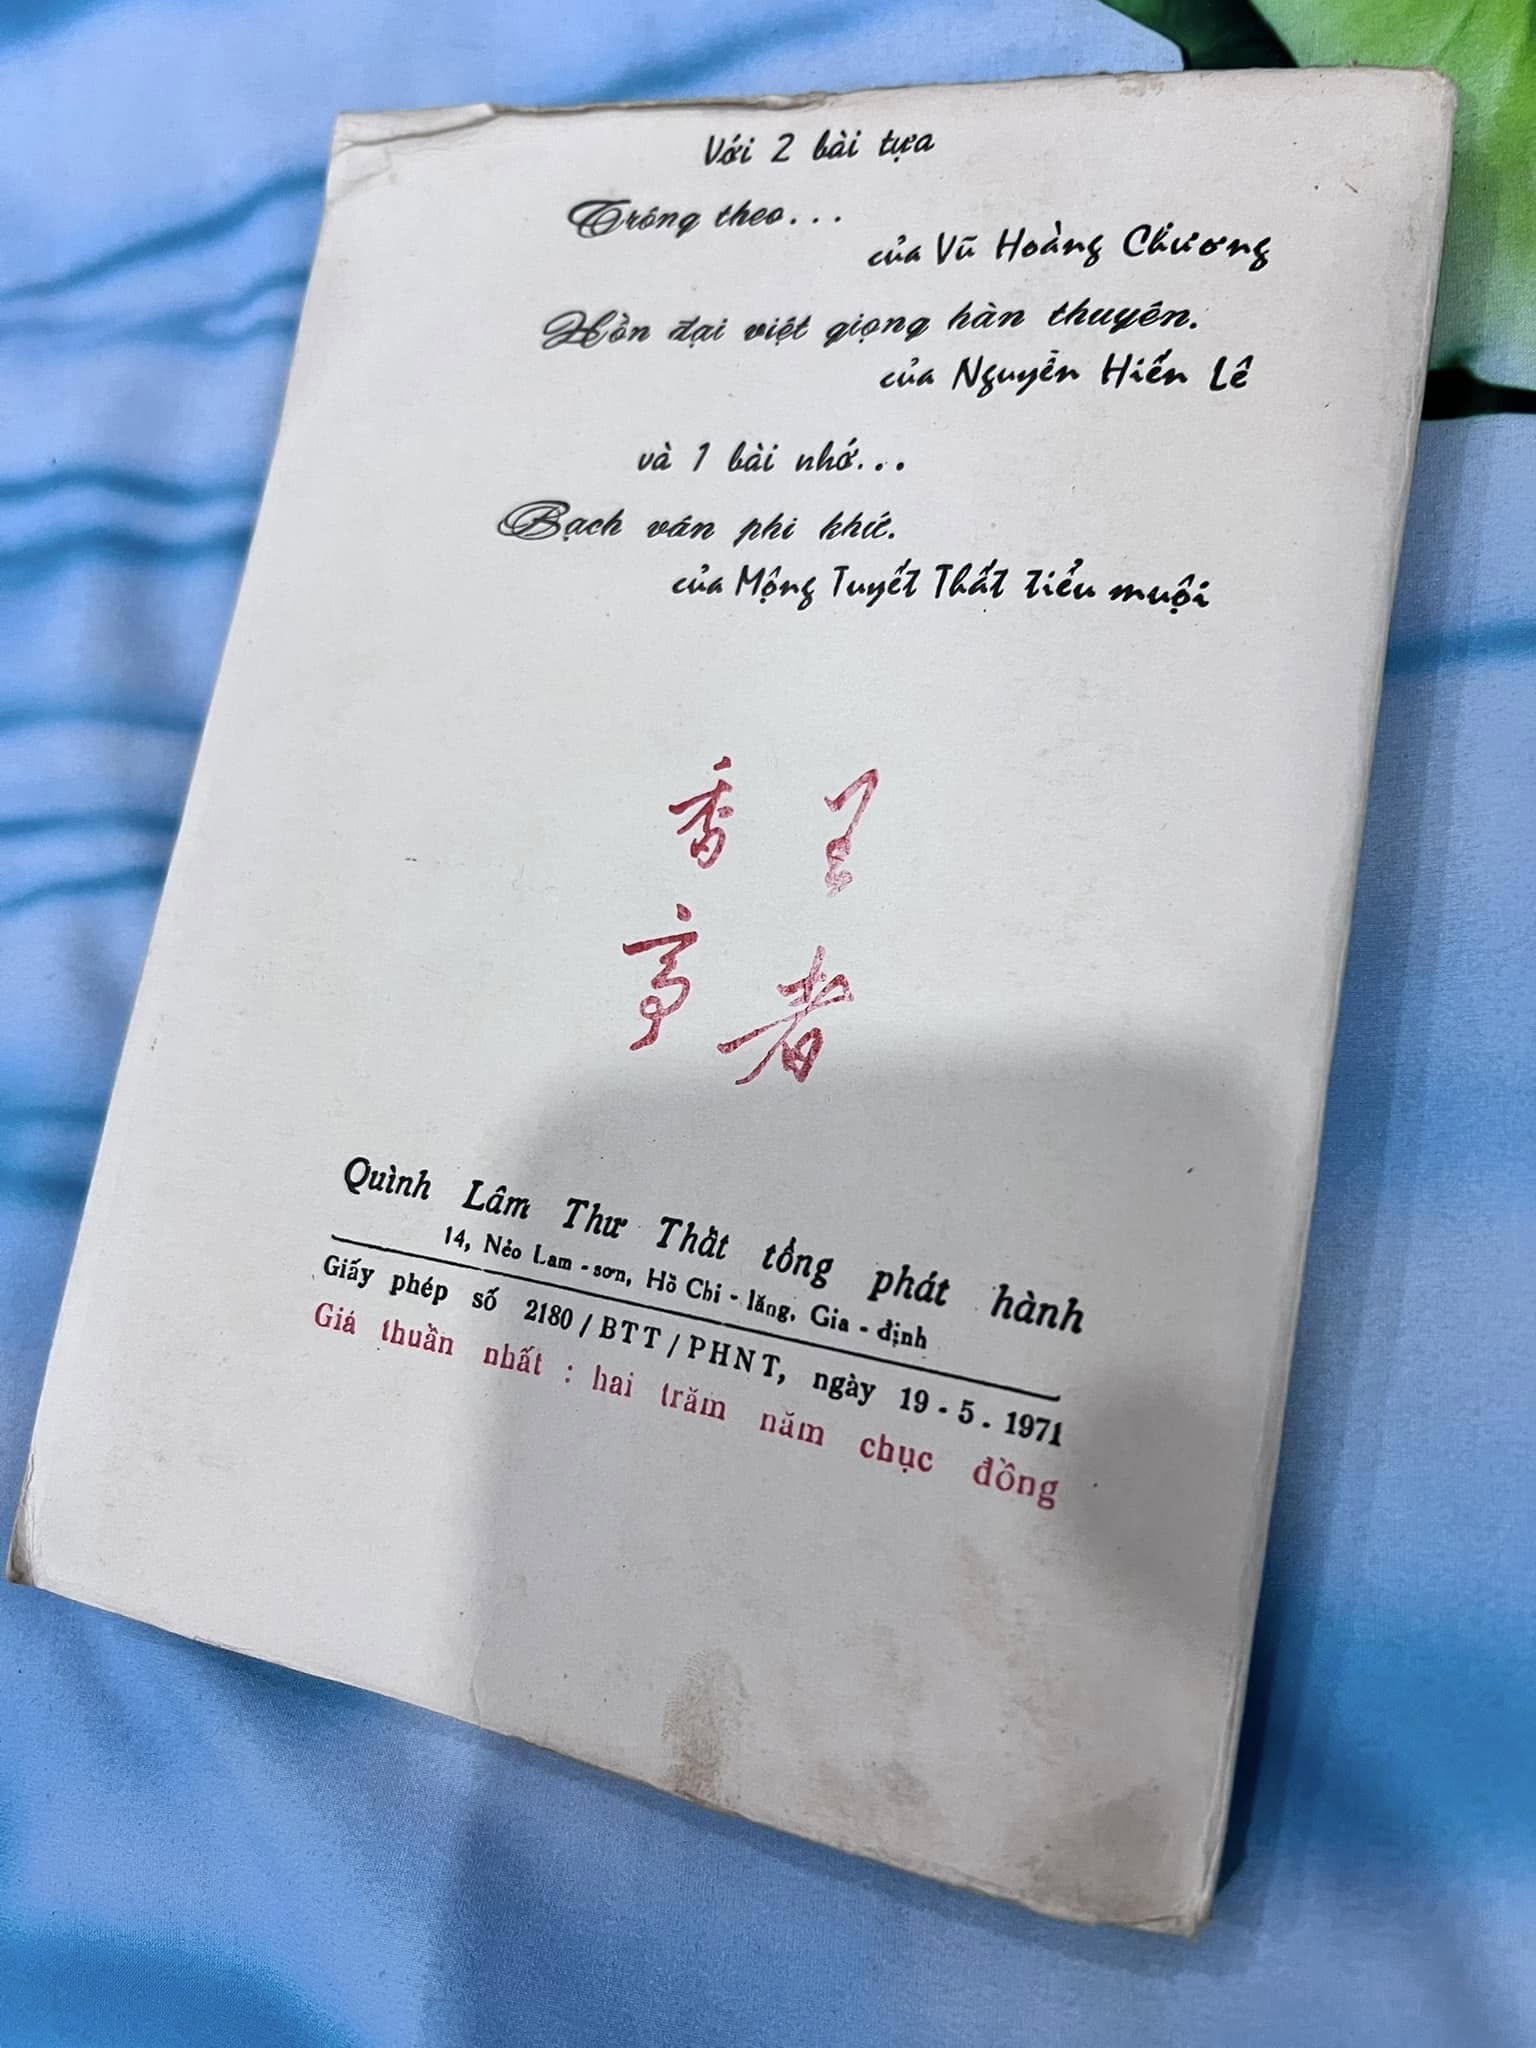 Với 2 bài tựa
Trông theo...
của Vũ Hoàng Chương
Hồn đại việt giọng hàn thuyên.
của Nguyễn Hiến Lê
và 1 bài nhớ...
Bạch vân phi khứ.
của Mộng Tuyết Thất tiểu muội
香
亭
者
Quình Lâm Thư Thất tổng phát hành
14, Nẻo Lam - sơn, Hồ Chi - lăng, Gia - định
Giấy phép số 2180 / BTT / PHNT, ngày 19 - 5 - 1971
Giá thuần nhất : hai trăm năm chục đồng